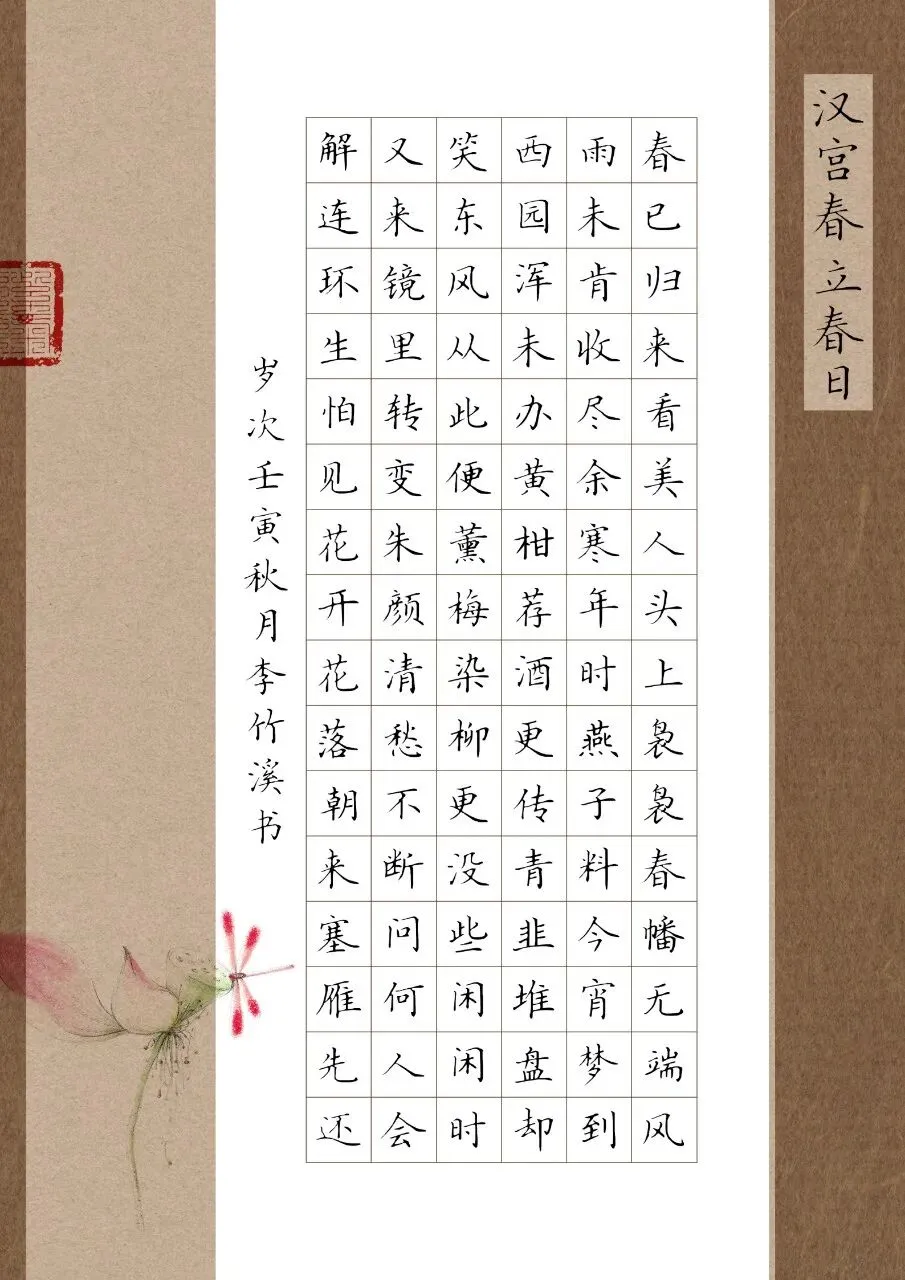 汉宫春立春日
春已归来看美人头上袅袅春幡无端风
雨未肯收尽余寒年时燕子料今宵梦到
西园浑未办黄柑荐酒更传青韭堆盘却
笑东风从此便薰梅染柳更没些闲闲时
又来镜里转变朱颜清愁不断问何人会
解连环生怕见花开花落朝来塞雁先还
岁次壬寅秋月李竹溪书